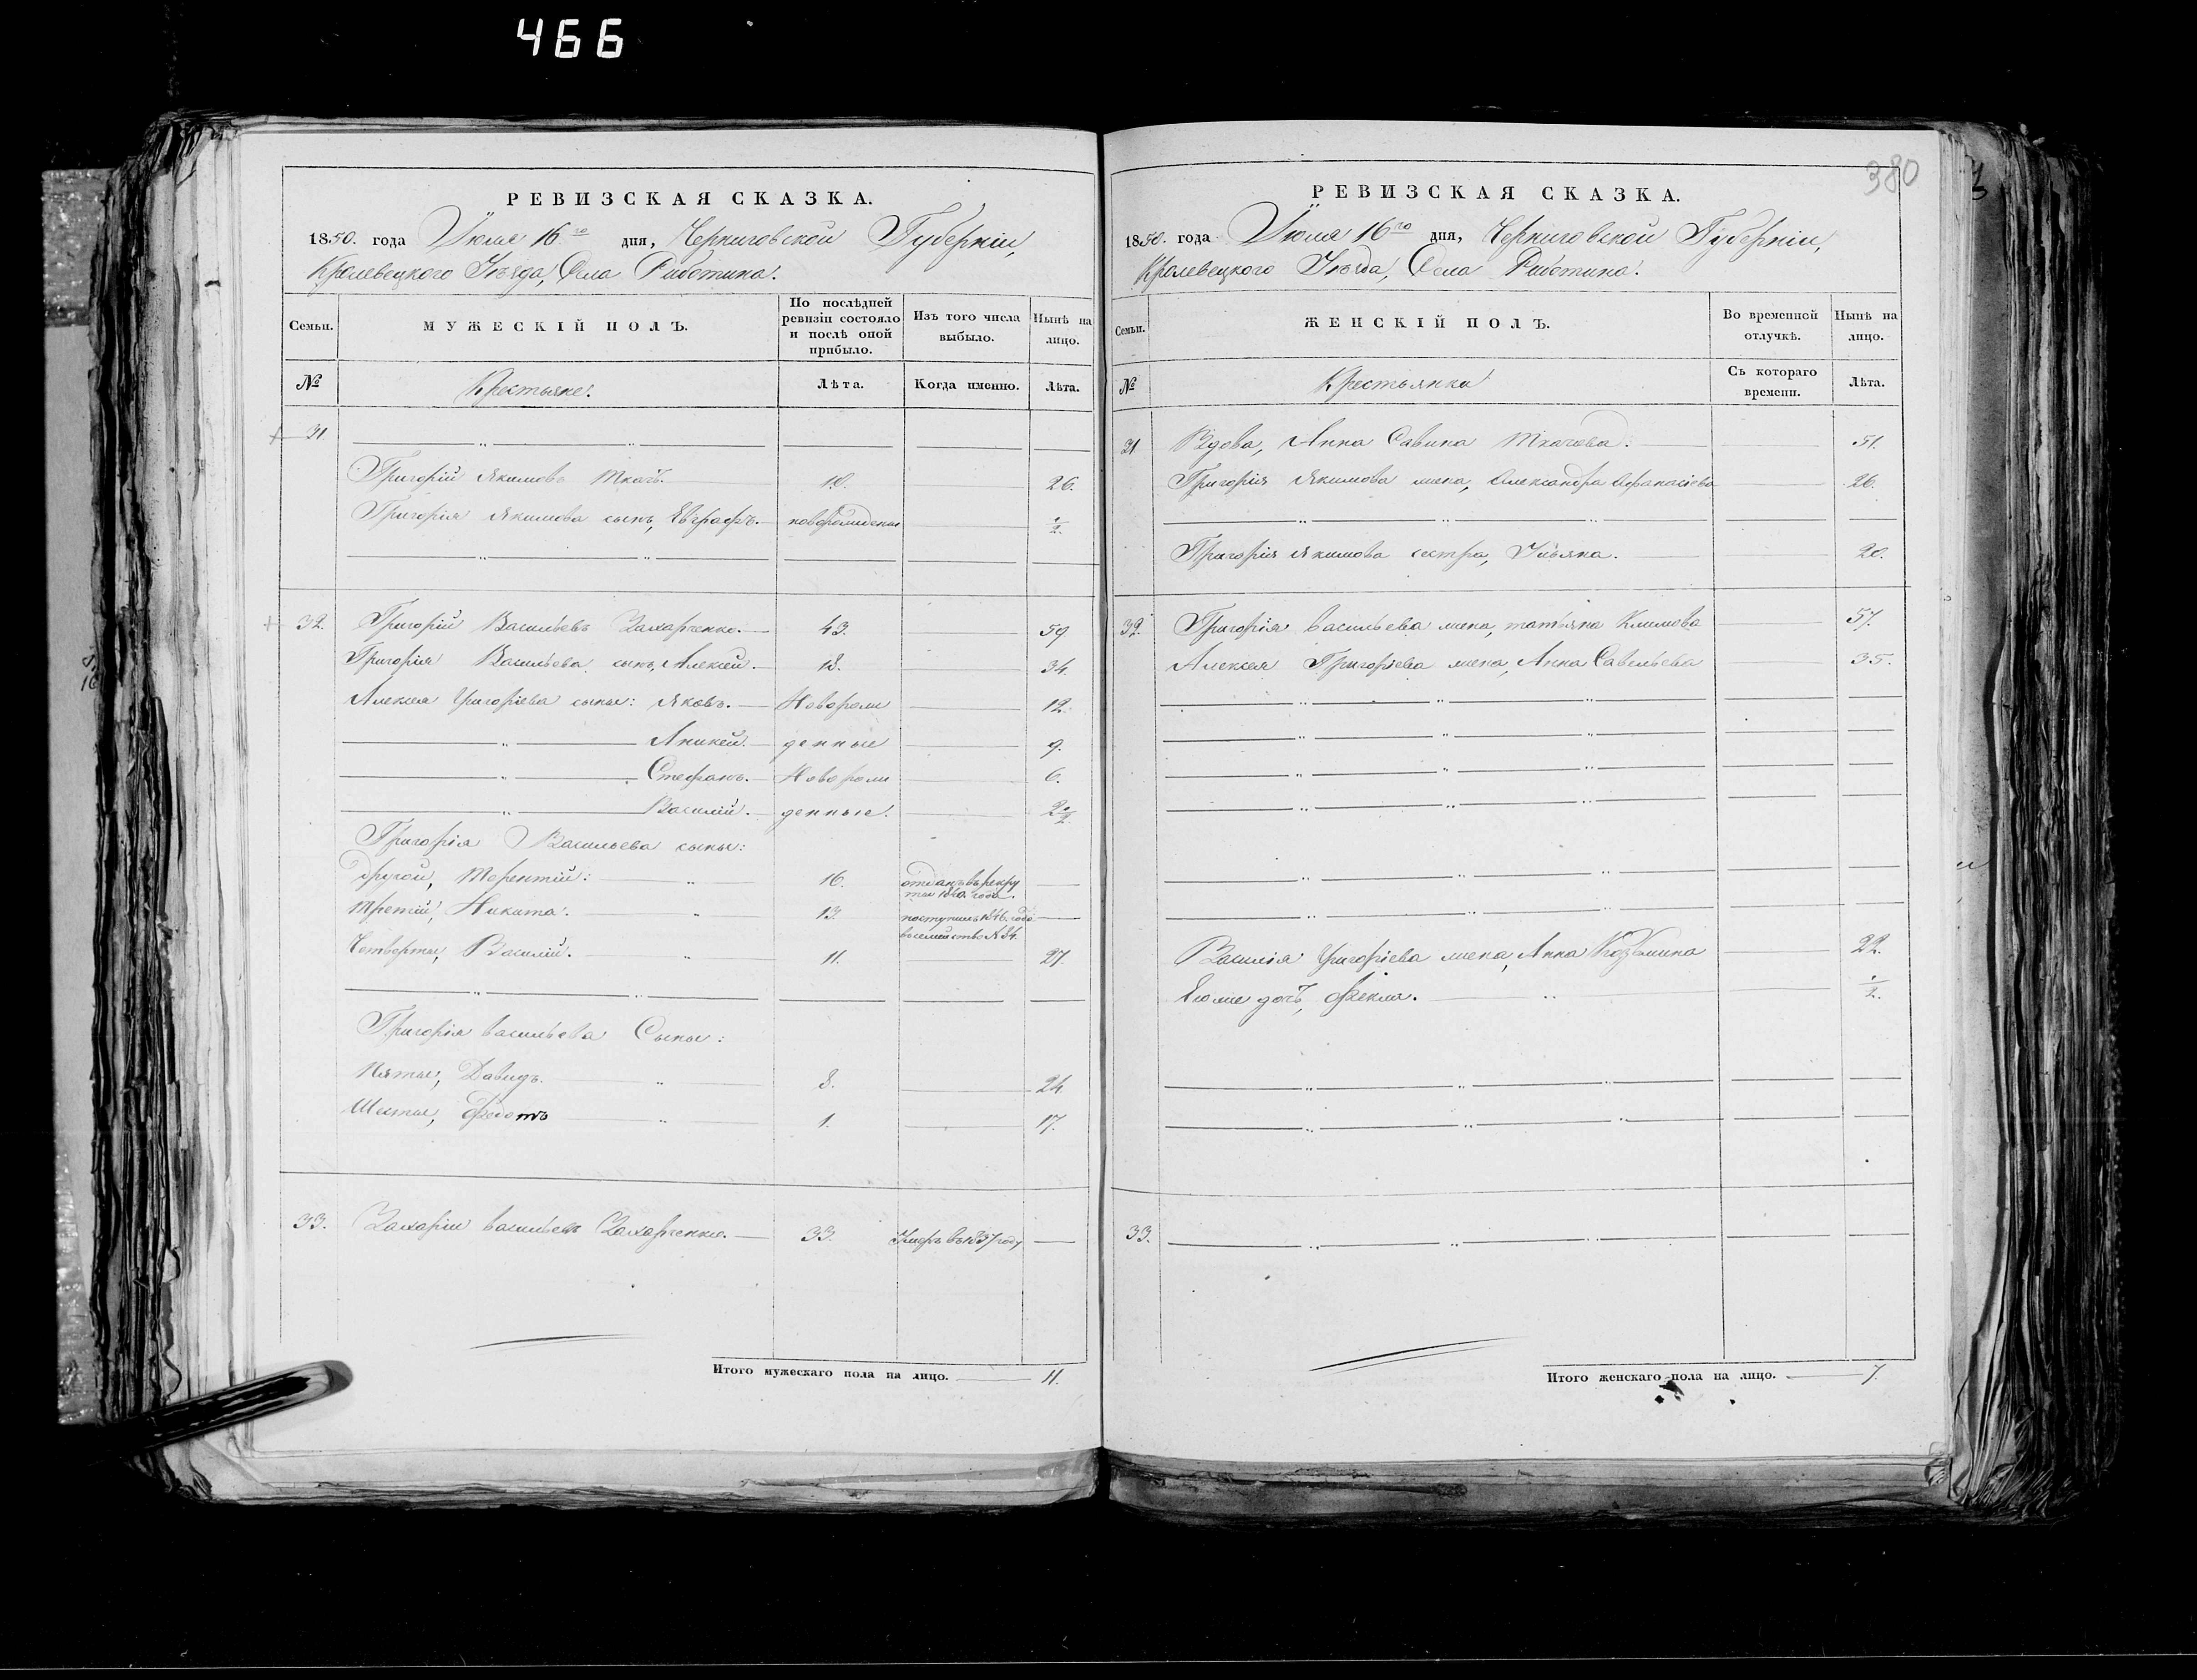 466
РЕВИЗСКАЯ СКАЗКА.
1850. года Іюля 16го дня, Черниговской Губерніи,
Кролевецкого Уѣзда, Села Риботина.
Семьи.
МУЖЕСКІЙ ПОЛЪ.
По послѣдней ревизіи состояло и послѣ оной прибыло.
Изъ того числа выбыло.
Нынѣ на лицо.
№
Крестьяне.
Лѣта.
Когда именно.
Лѣта.
31
Григорій Якимовъ Ткачъ. 10. 26.
Григорія Якимова сынъ, Евграфъ. новорожденый ½
32. Григорій Васильевъ Захарченко. 43. 59
Григорія Васильева сынъ, Алексей. 18. 34.
Алексея Григоріева сыны: Яковъ. Неворож 12.
Аникей. денные 9.
Стефанъ. Новорож 6.
Василій. денные. 2½
Григорія Васильева сыны:
Другой, Терентій: 16. отданъ въ рекру
ты 1840. года.
Третій, Никита. 13 поступилъ 1846. года
въ семейство № 34.
Четвертый, Василій. 11. 27.
Григорія Васильева Сыны:
Пятый, Давидъ. 8. 24
Шестый, Федотъ 1. 17.
33. Захарій Васильевъ Захарченко. 33. Умеръ въ 1837 году
Итого мужескаго пола на лицо. 11.
380
РЕВИЗСКАЯ СКАЗКА.
1850. года Іюля 16го дня, Черниговской Губерніи,
Кролевецкого Уѣзда, Села Риботина.
Семьи.
ЖЕНСКІЙ ПОЛЪ.
Во временной отлучкѣ.
Нынѣ на лицо.
№
Крестьянки
Съ котораго времени.
Лѣта.
31 Вдова, Анна Савина Ткачова. 51.
Григорія Якимова жена, Александра Афанасіева 26.
Григорія Якимова сестра, Ульяна. 20.
32. Григорія Васильева жена, Татьяна Климова 57.
Алексея Григоріева жена, Анна Савельева 35.
Василія Григоріева жена, Анна Козьмина 22.
Егоже дочъ, Фекла. ½
33.
Итого женскаго пола на лицо. 7.